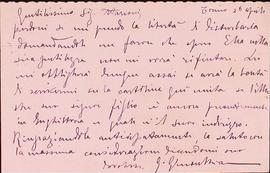 Gentilissimo Sig. Marconi, Torino 26 Aprile
perdoni se mi prendo la libertà di disturbarla
domandandole un favore che spero Ella nella
sua gentilezza non mi vorrà rifiutare. Lei
mi obbligherà dunque assai se avrà la bontà
di scrivermi su la cartolina qui unita se l'
che suo signor figlio è ancora presentemente
in Inghilterra e quale è il suo indirizzo.
Ringraziandola anticipatamente la saluto con
la massima considerazione dicendomi suo
devotissimo G.